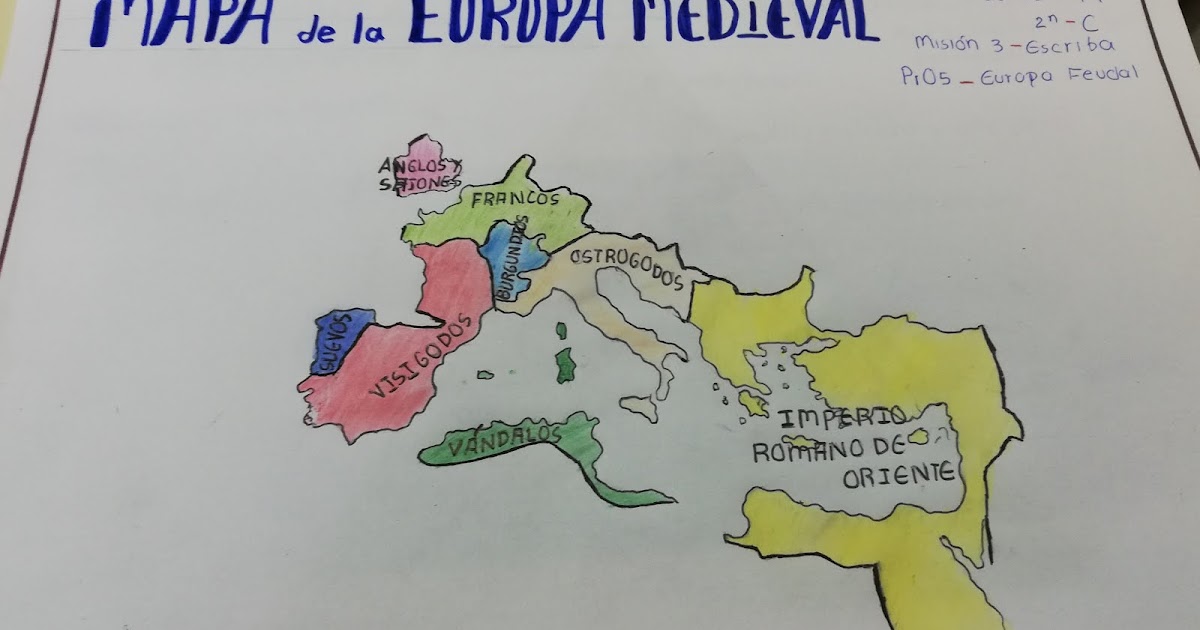 MAPA de la EUROPA MEDIEVAL
2n-C
Misión 3-Escriba
Pr05-Europa Feudal
ANGLOS Y
SAJONES
FRANCOS
BURGUNDIOS
OSTROGODOS
SUEVOS
VISIGODOS
VÁNDALOS
IMPERIO
ROMANO DE
ORIENTE